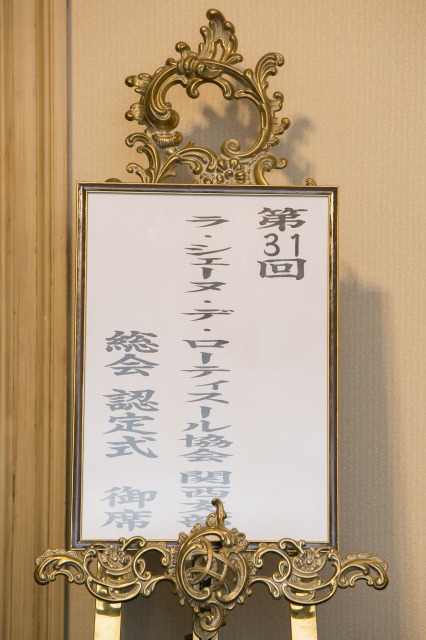 第31回
ラ・シェーヌ・デ・ローティスール協会 関西支部
総会 認定式 御席